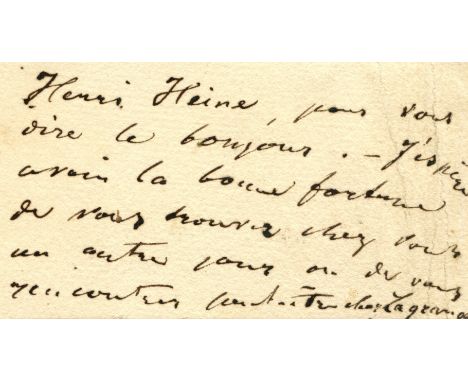 Henri Heine, pour vous
dire le bonjour. – J'espère
avoir la bonne fortune
de vous trouver chez vous
un autre jour ou de vous
rencontrer peut-être chez